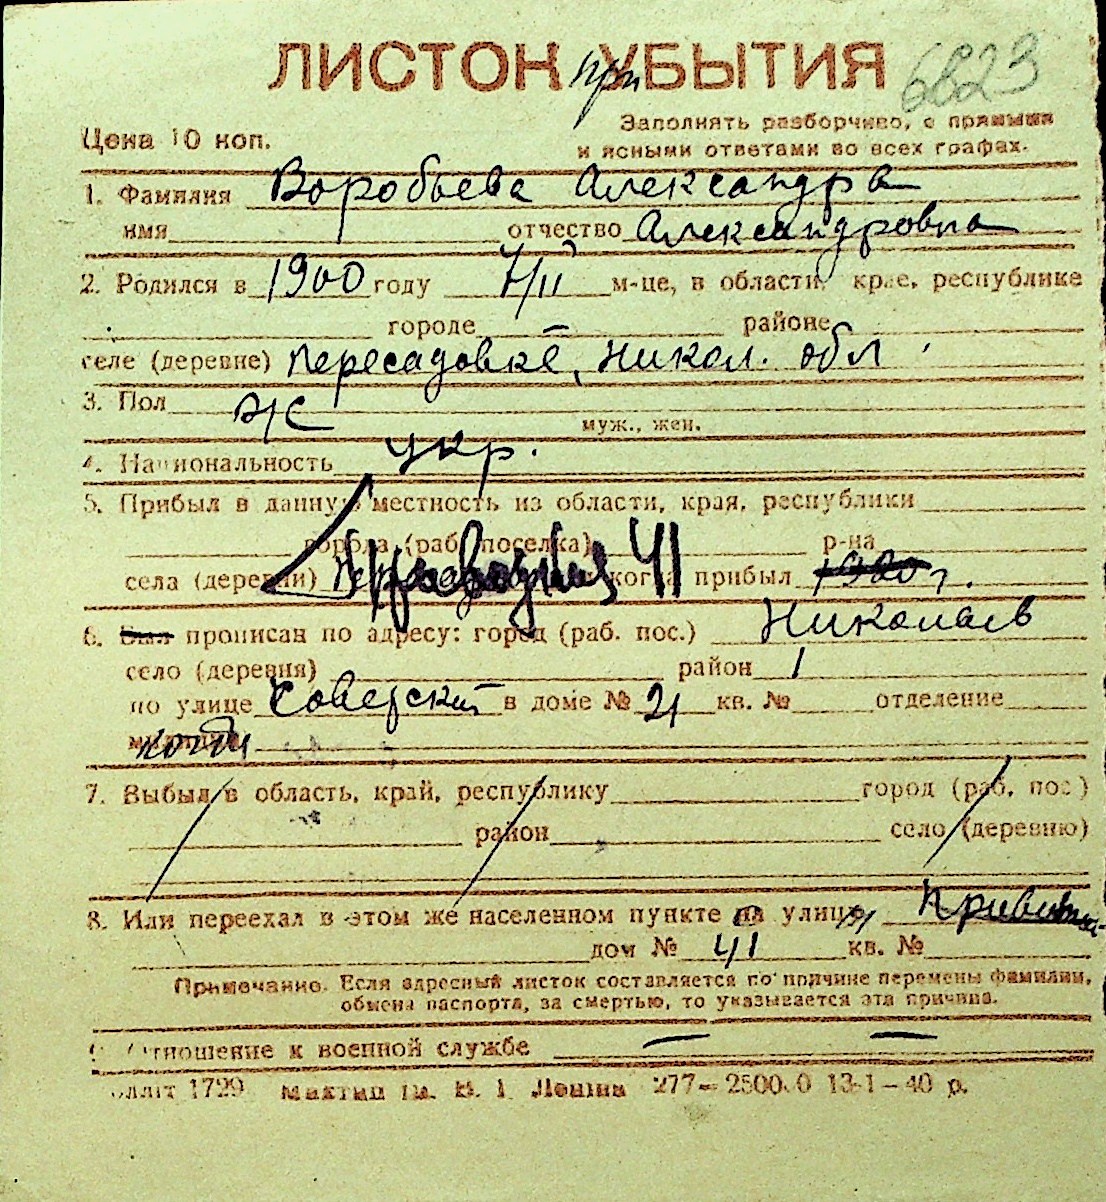 ЛИСТОК при УБЫТИЯ 6823
Цена 10 коп.
Заполнять разборчиво, с прямыми
и ясными ответами во всех графах.
1. Фамилия Воробьева Александра
имя отчество Александровна
2. Родился в 1900 году 7/II м-це, в области, крае, республике
городе районе
селе (деревне) Пересадовке, Никол. обл.
3. Пол Ж
муж., жен.
4. Национальность укр.
5. Прибыл в данную местность из области, края, республики
города (раб. поселка) р-на
села (деревни) 41 когда прибыл 1920 г.
6. Был прописан по адресу: город (раб. пос.) Николаев
село (деревня) район 1
по улице Советский в доме № 21 кв. № отделение
милиции когда
7. Выбыл в область, край, республику город (раб. пос.)
район село (деревню)
8. Или переехал в этом же населенном пункте на улицу
дом № 41 кв. №
Примечание. Если адресный листок составляется по причине перемены фамилии,
обмена паспорта, за смертью, то указывается эта причина.
9. Отношение к военной службе — —
1729 им. В. И. Ленина 277—2500.0 13-1-40 р.